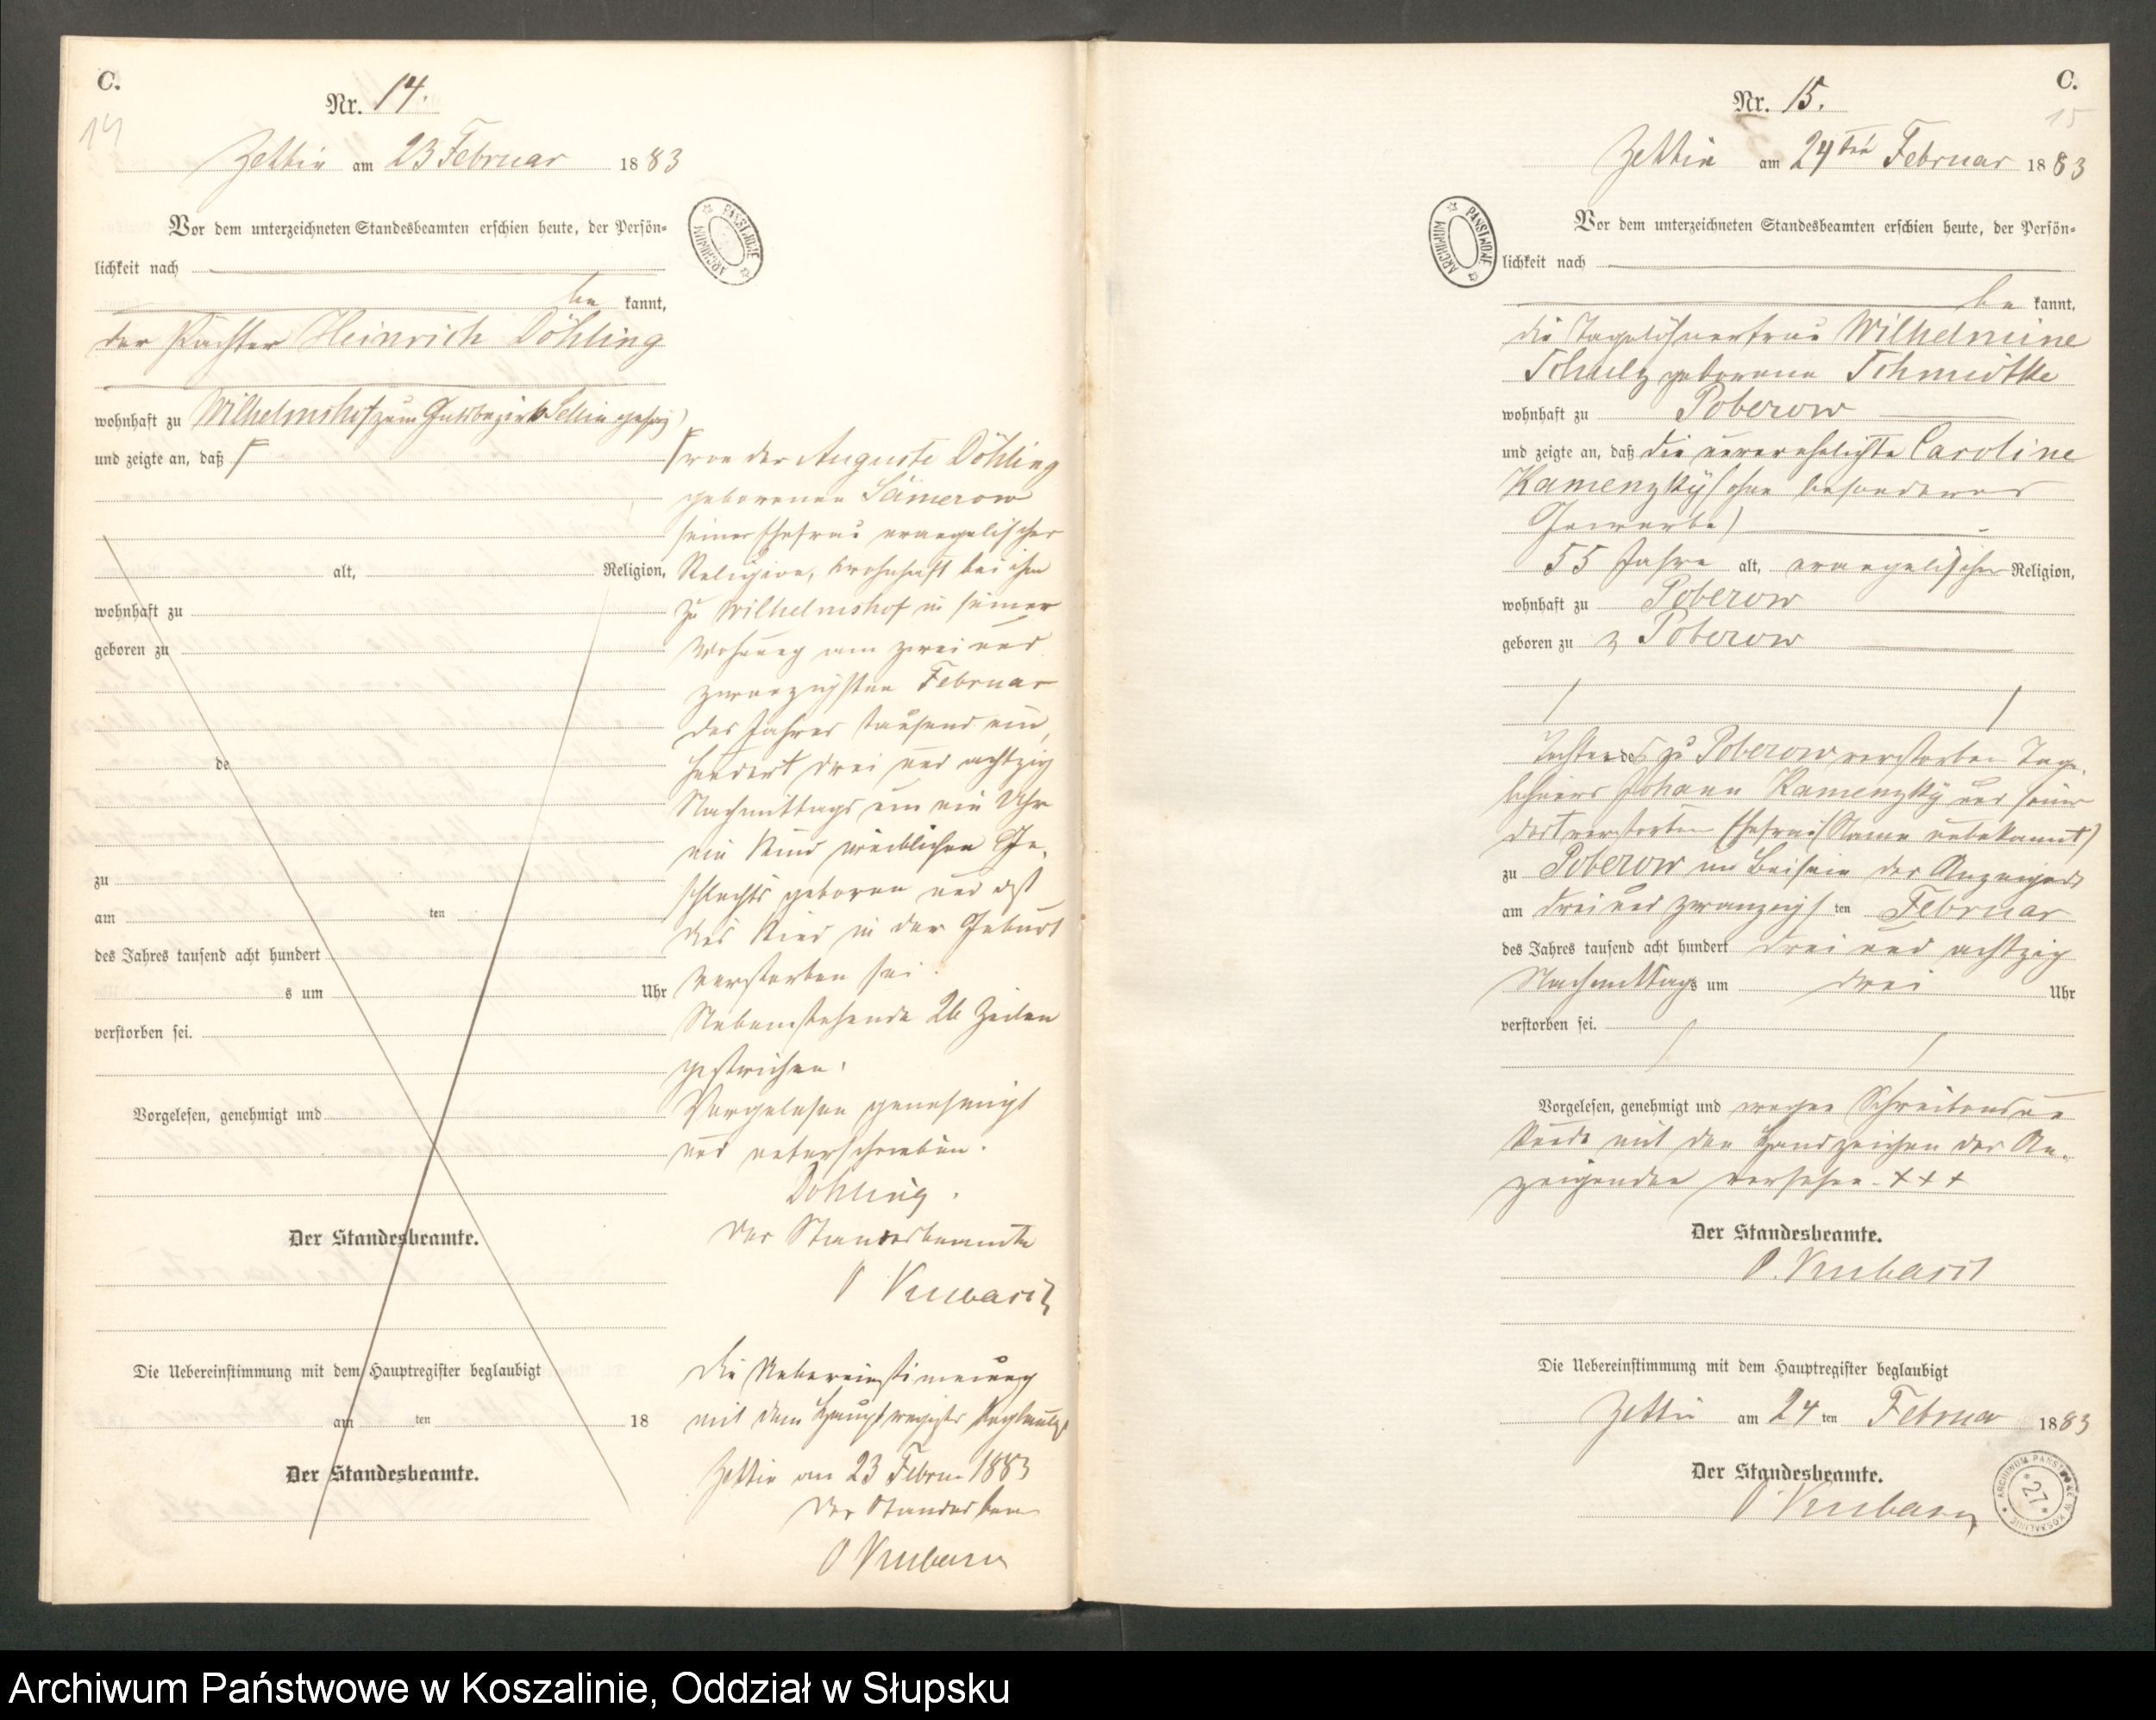 C.
14
Nr. 14.
Zettin am 23 Februar 1883
Vor dem unterzeichneten Standesbeamten erschien heute, der Persön-
lichkeit nach
be kannt,
der Pächter Heinrich Döhling
wohnhaft zu Wilhelmshof zum Gutsbezirk Sellin gehörig
und zeigte an, daß
alt, Religion,
wohnhaft zu
geboren zu
de
zu
am ten
des Jahres tausend acht hundert
s um Uhr
verstorben sei.
Vorgelesen, genehmigt und
Der Standesbeamte.
Die Uebereinstimmung mit dem Hauptregister beglaubigt
am ten 18
Der Standesbeamte.
von der Auguste Döhling
geborenen
seiner Ehefrau evangelischer
Religion, wohnhaft bei ihm
zu Wilhelmshof in seiner
Wohnung am zwei und
zwanzigsten Februar
des Jahres tausend
hundert drei und achtzig
Nachmittags um ein Uhr
ein Kind weiblichen Ge-
schlechts geboren und daß
das Kind in der Geburt
verstorben sei.
Nebenstehende 26 Zeilen
gestrichen.
Vorgelesen genehmigt
und unterschrieben.
Döhling.
Der Standesbeamte
Die Uebereinstimmung
mit dem Hauptregister beglaubigt
Zettin am 23 Februar 1883
Der
ARCHIWUM PAŃSTWOWE
C.
15
Nr. 15.
Zettin am 24ten Februar 1883
Vor dem unterzeichneten Standesbeamten erschien heute, der Persön-
lichkeit nach
be kannt,
die Tagelöhnerfrau Wilhelmine
Schulz geborene Schmidtke
wohnhaft zu Poberow
und zeigte an, daß die unverehelichte Caroline
Kamenzky (ohne besonderes
Gewerbe)
55 Jahre alt, evangelischer Religion,
wohnhaft zu Poberow
geboren zu Poberow
Tochter des zu Poberow verstorben Tage-
löhners Johann Kamenzky und seiner
dort verstorben Ehefrau (Name unbekannt)
zu Poberow im Beisein der Anzeigende
am drei und zwanzigsten Februar
des Jahres tausend acht hundert drei und achtzig
Nachmittags um drei Uhr
verstorben sei.
Vorgelesen, genehmigt und wegen Schreibensun-
kunde mit den Handzeichen der An-
zeigenden versehen. +++
Der Standesbeamte.
Die Uebereinstimmung mit dem Hauptregister beglaubigt
Zettin am 24 ten Februar 1883
Der Standesbeamte.
ARCHIWUM PAŃSTWOWE
ARCHIWUM PAŃSTWOWE W KOSZALINIE
*27*
Archiwum Państwowe w Koszalinie, Oddział w Słupsku